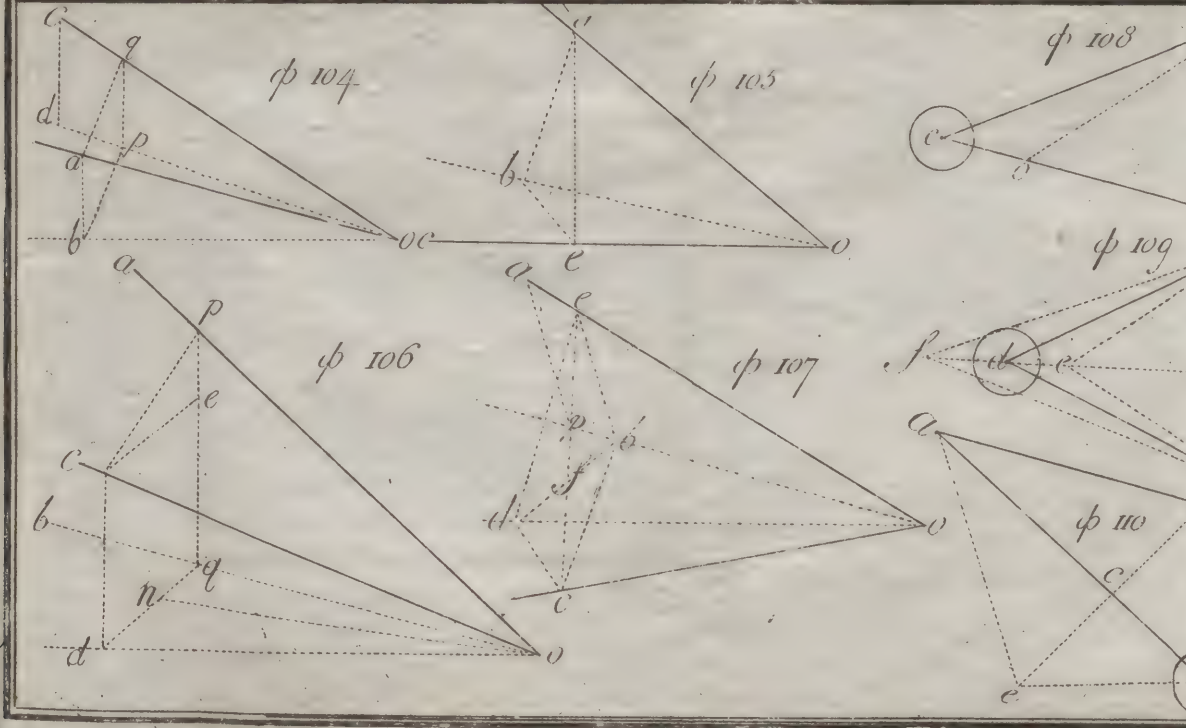 c
q
ф 104
d
a
p
b
o
a
ф 105
b
c
e
o
ф 108
c
o
a
p
ф 106
e
c
b
q
n
d
o
a
e
ф 107
p
b
f
d
o
c
ф 109
f
d
e
a
ф 110
c
e